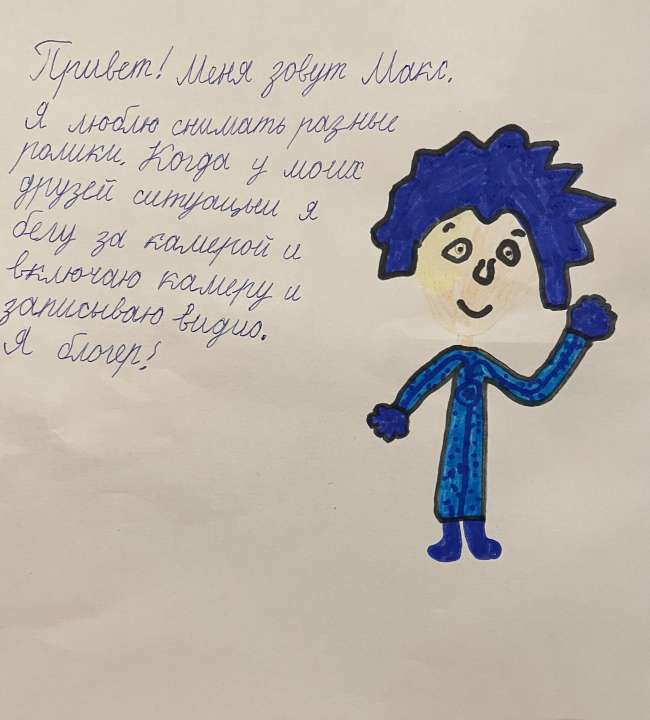 Привет! Меня зовут Макс.
Я люблю снимать разные
ролики. Когда у моих
друзей ситуацыи я
бегу за камерой и
включаю камеру и
записываю видио.
Я блогер!